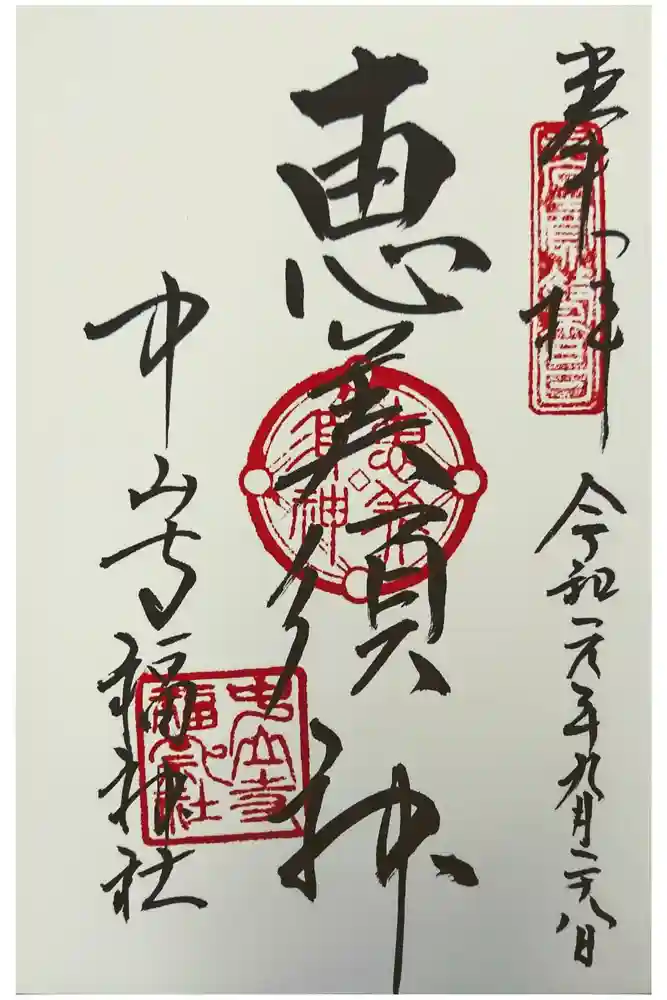 奉拝
令和元年九月二十八日
恵美須神
恵美
須神
中山寺福神社
中山寺
福神社